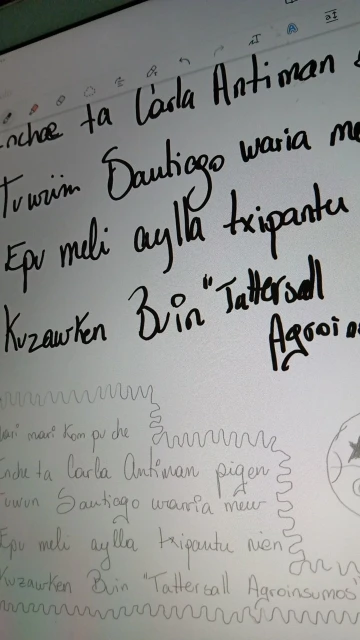 Inchae ta Carla Antiman
Tuwün Santiago waria
Epu meli aylla txipantu
Kuzawken Bin "Tattersall
Agroin
mari Kom pu che
Inche ta Carla Antiman pigen
Tuwun Santiago warria mew
Epu meli aylla txipantu nien
Kuzawken Bin "Tattersall Agroinsumos